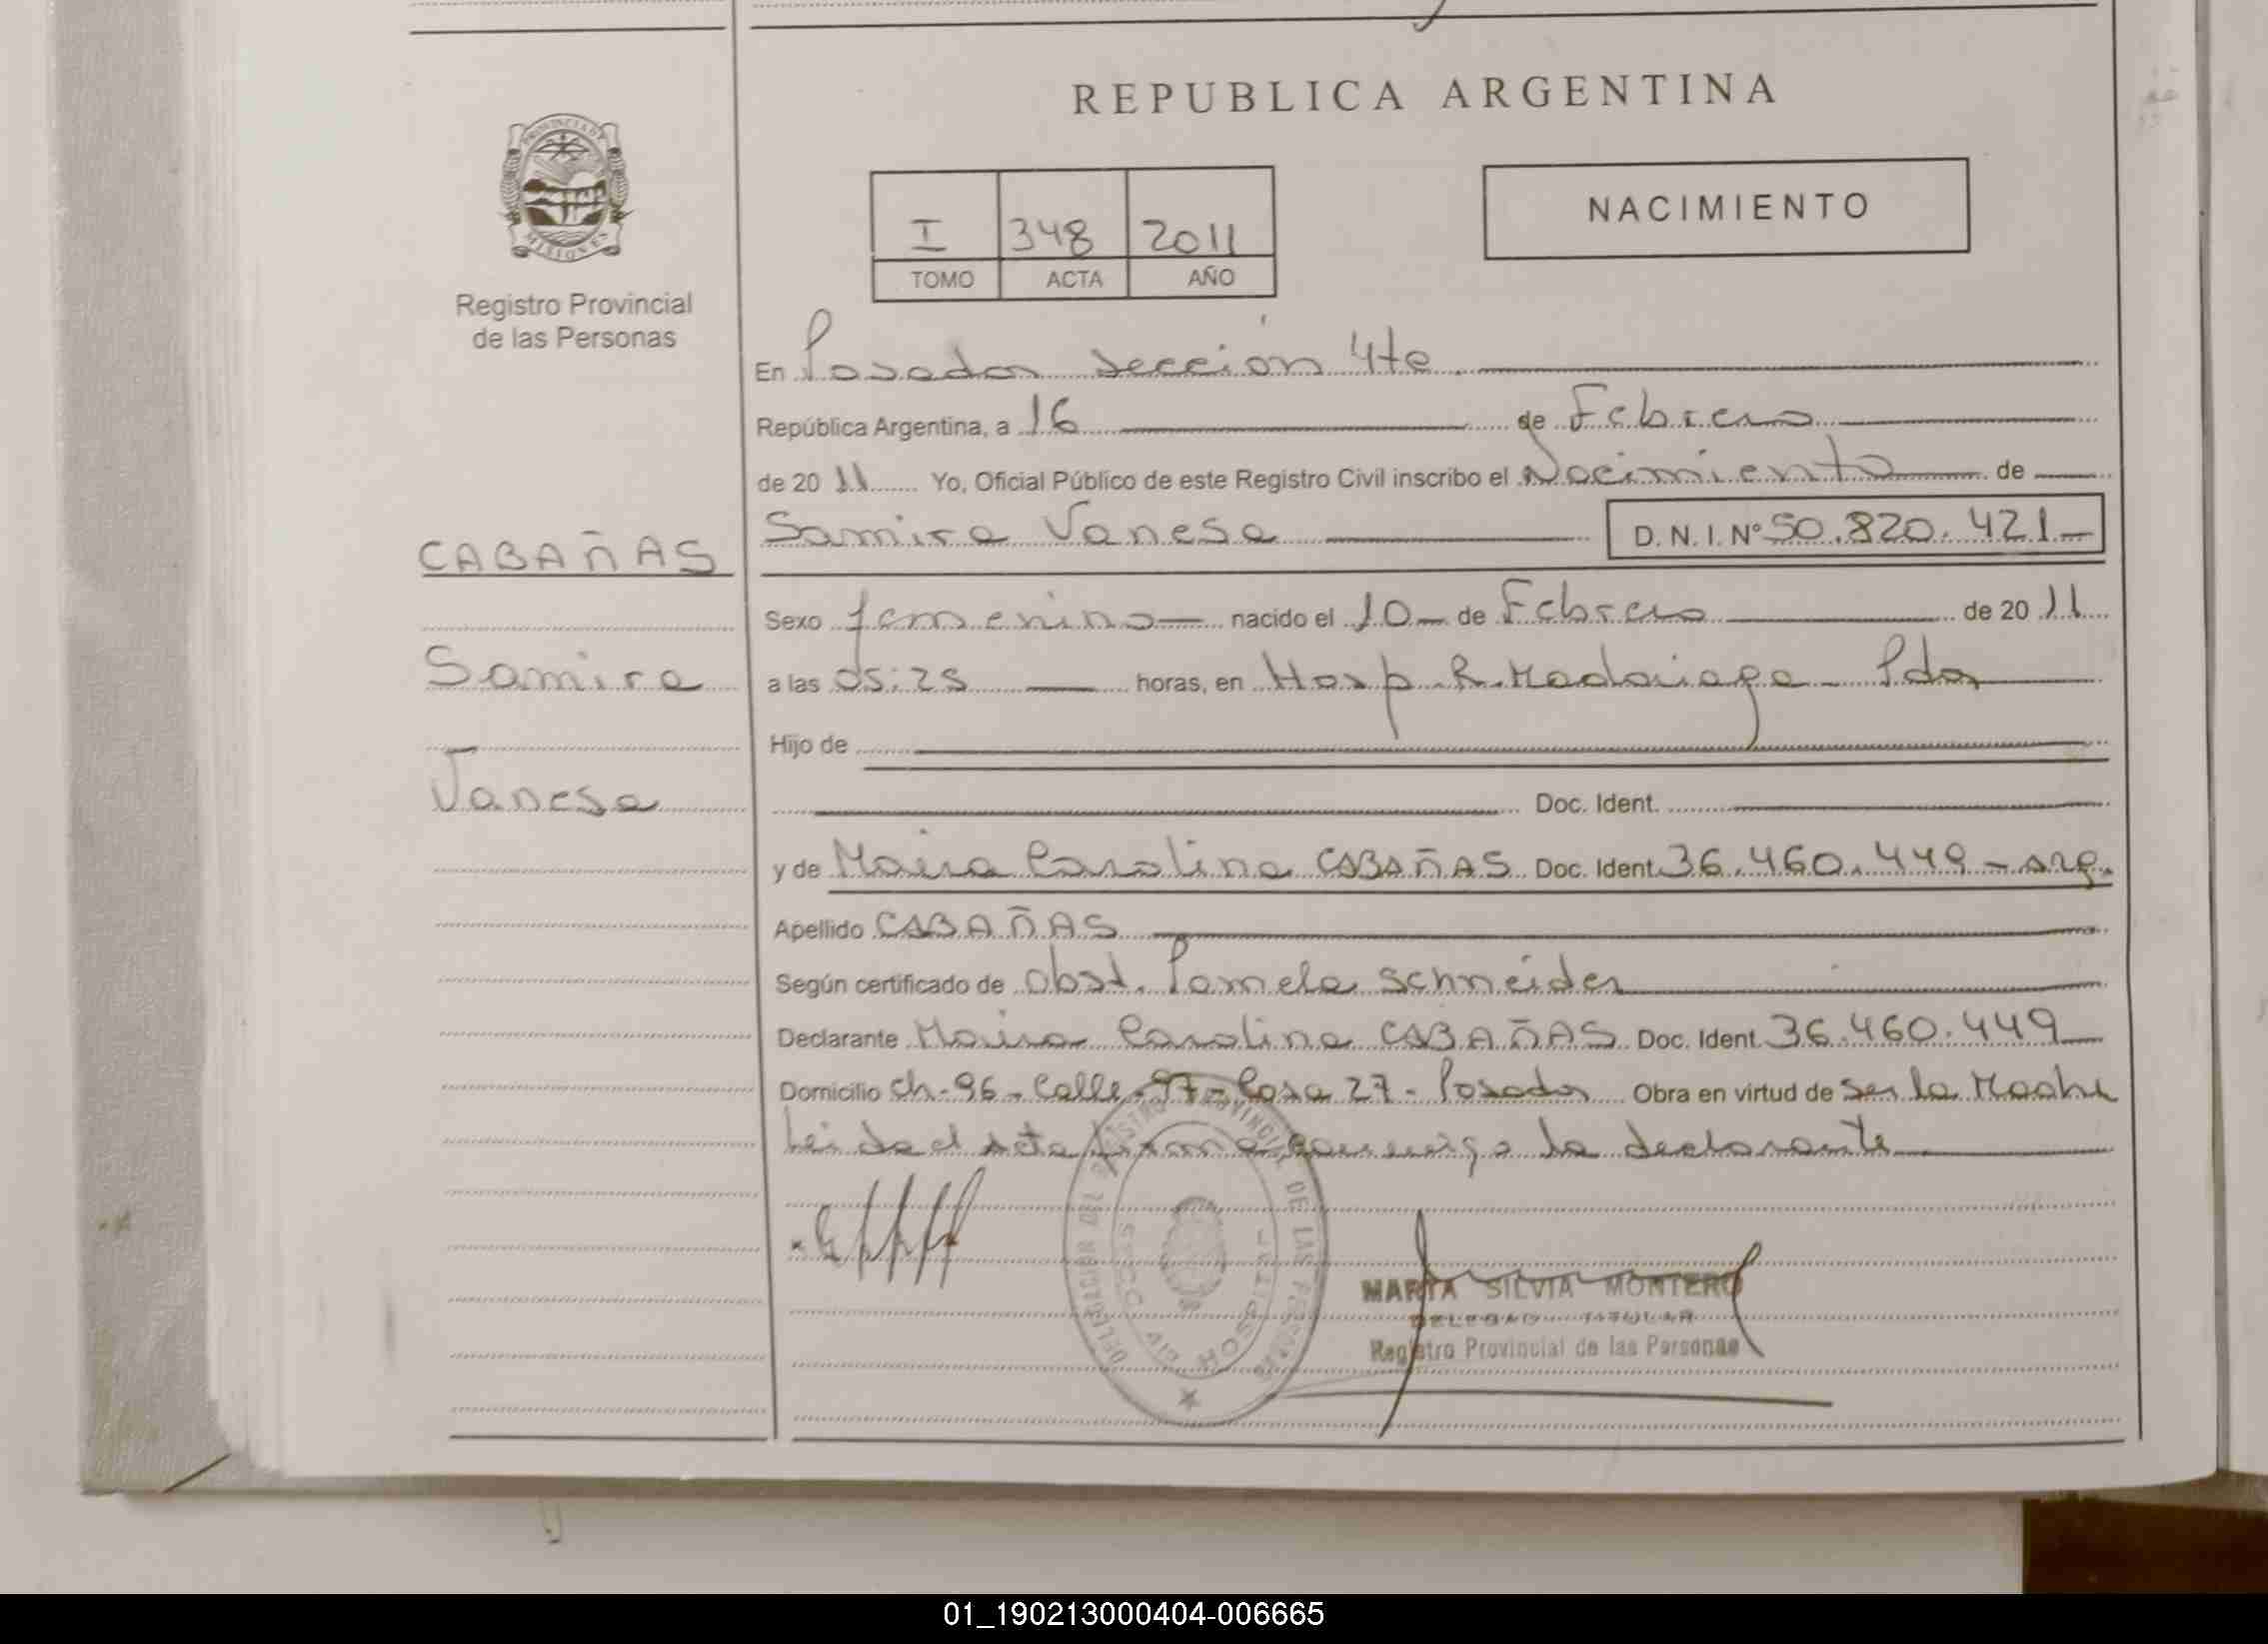 REPUBLICA ARGENTINA
PROVINCIA DE
MISIONES
Registro Provincial
de las Personas
I 348 2011
TOMO ACTA AÑO
NACIMIENTO
En Posadas sección 4ta
República Argentina, a 16 de Febrero
de 2011 Yo, Oficial Público de este Registro Civil inscribo el Nacimiento de
CABAÑAS
Samira Vanesa D.N.I. Nº 50.820.421
Sexo femenino nacido el 10 de Febrero de 2011
Samira
a las 05:25 horas, en Hosp. R. Madariaga - Pdas
Hijo de
Vanesa
Doc. Ident.
y de Maira Carolina CABAÑAS Doc. Ident. 36.460.449 - arg.
Apellido CABAÑAS
Según certificado de obst. Pamela Schneider
Declarante Maira Carolina CABAÑAS Doc. Ident. 36.460.449
Domicilio Ch-96 - Calle 97 - Casa 27 - Posadas Obra en virtud de ser la Madre
Leida el acta firma conmigo la declarante
DELEGACION DEL REGISTRO PROVINCIAL DE LAS PERSONAS
HOSPITAL
MARTA SILVIA MONTERO
DELEGADO TITULAR
Registro Provincial de las Personas
01_190213000404-006665